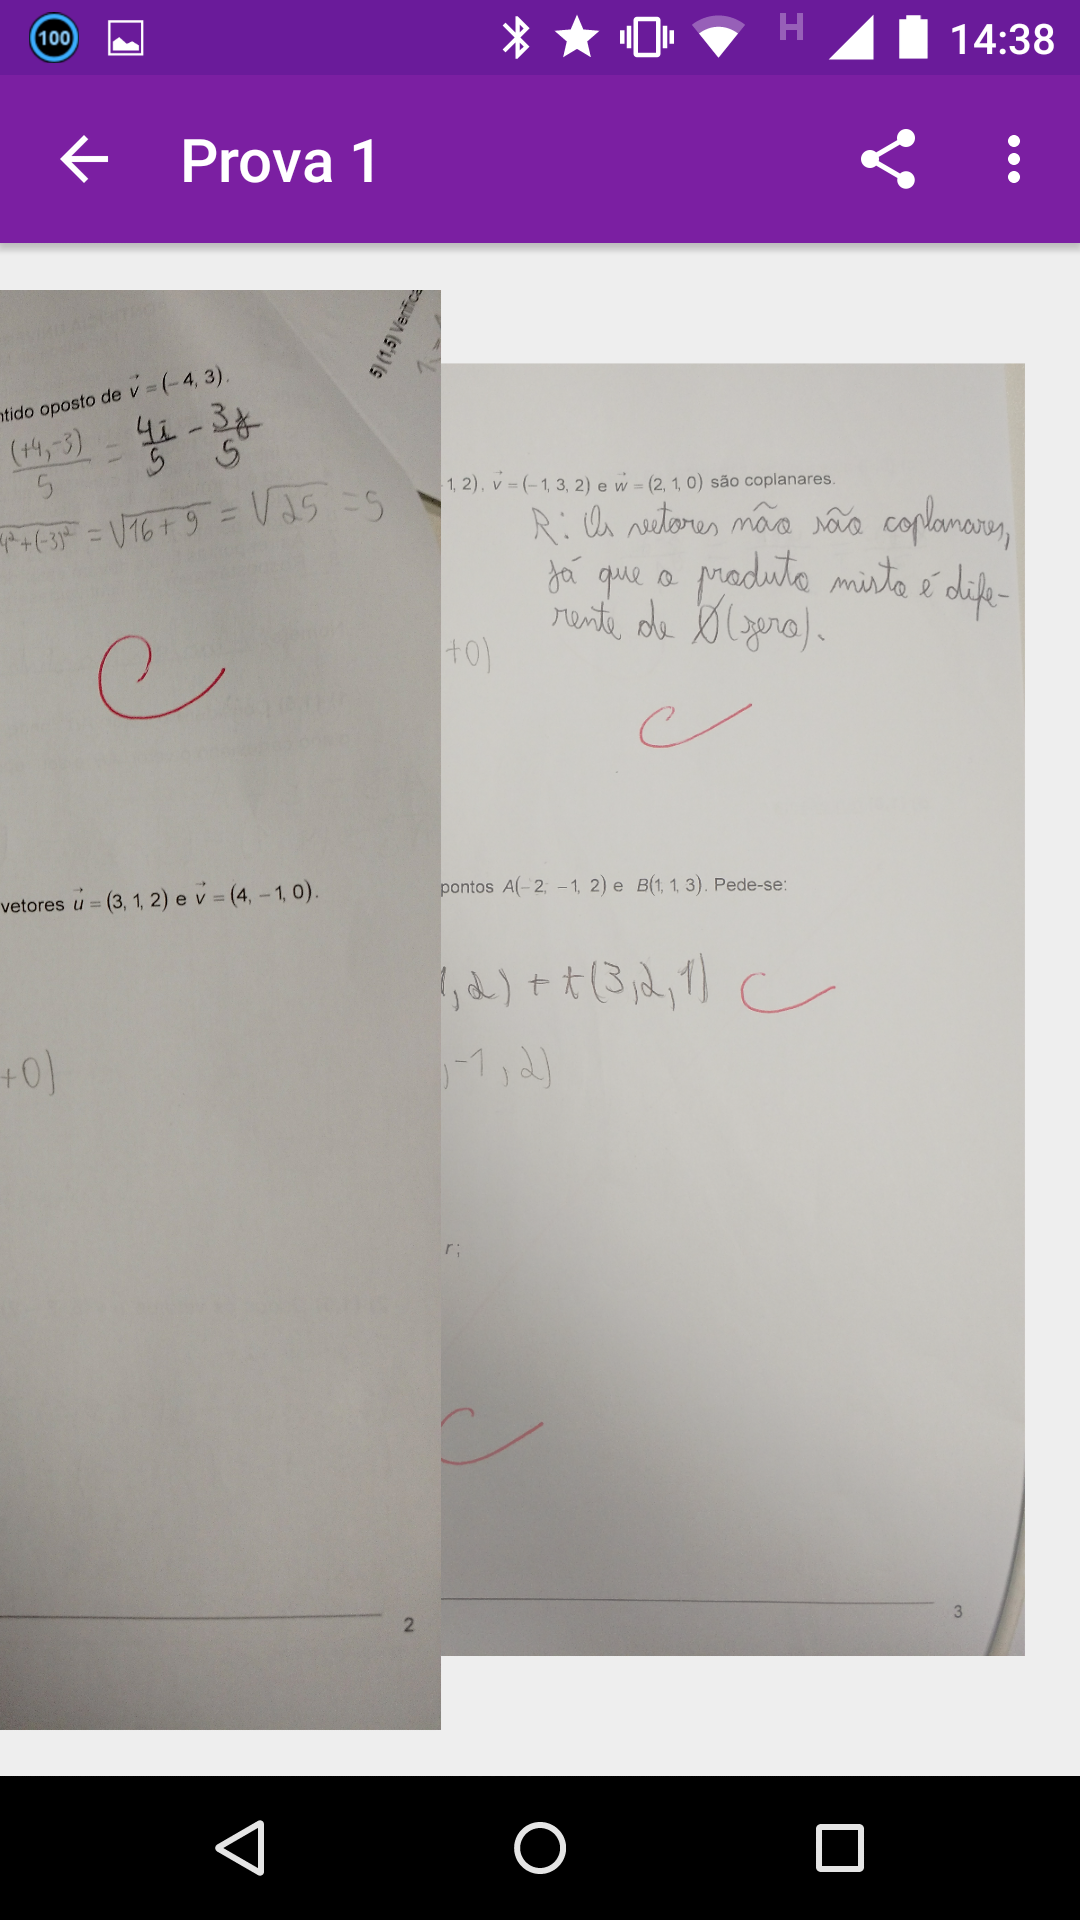 100
H
14:38
Prova 1
5) (1,5) Verifica
ntido oposto de v⃗ = (– 4, 3).
(+4,-3)/5 = 4i/5 - 3j/5
4²+(-3)² = √16+9 = √25 = 5
vetores u⃗ = (3, 1, 2) e v⃗ = (4, – 1, 0).
+0)
2
1, 2), v⃗ = (– 1, 3, 2) e w⃗ = (2, 1, 0) são coplanares.
R: Os vetores não são coplanares,
já que o produto misto é dife-
rente de Ø (zero).
+0)
pontos A(– 2, – 1, 2) e B(1, 1, 3). Pede-se:
1,2) + t(3,2,1)
,-1,2)
r;
3